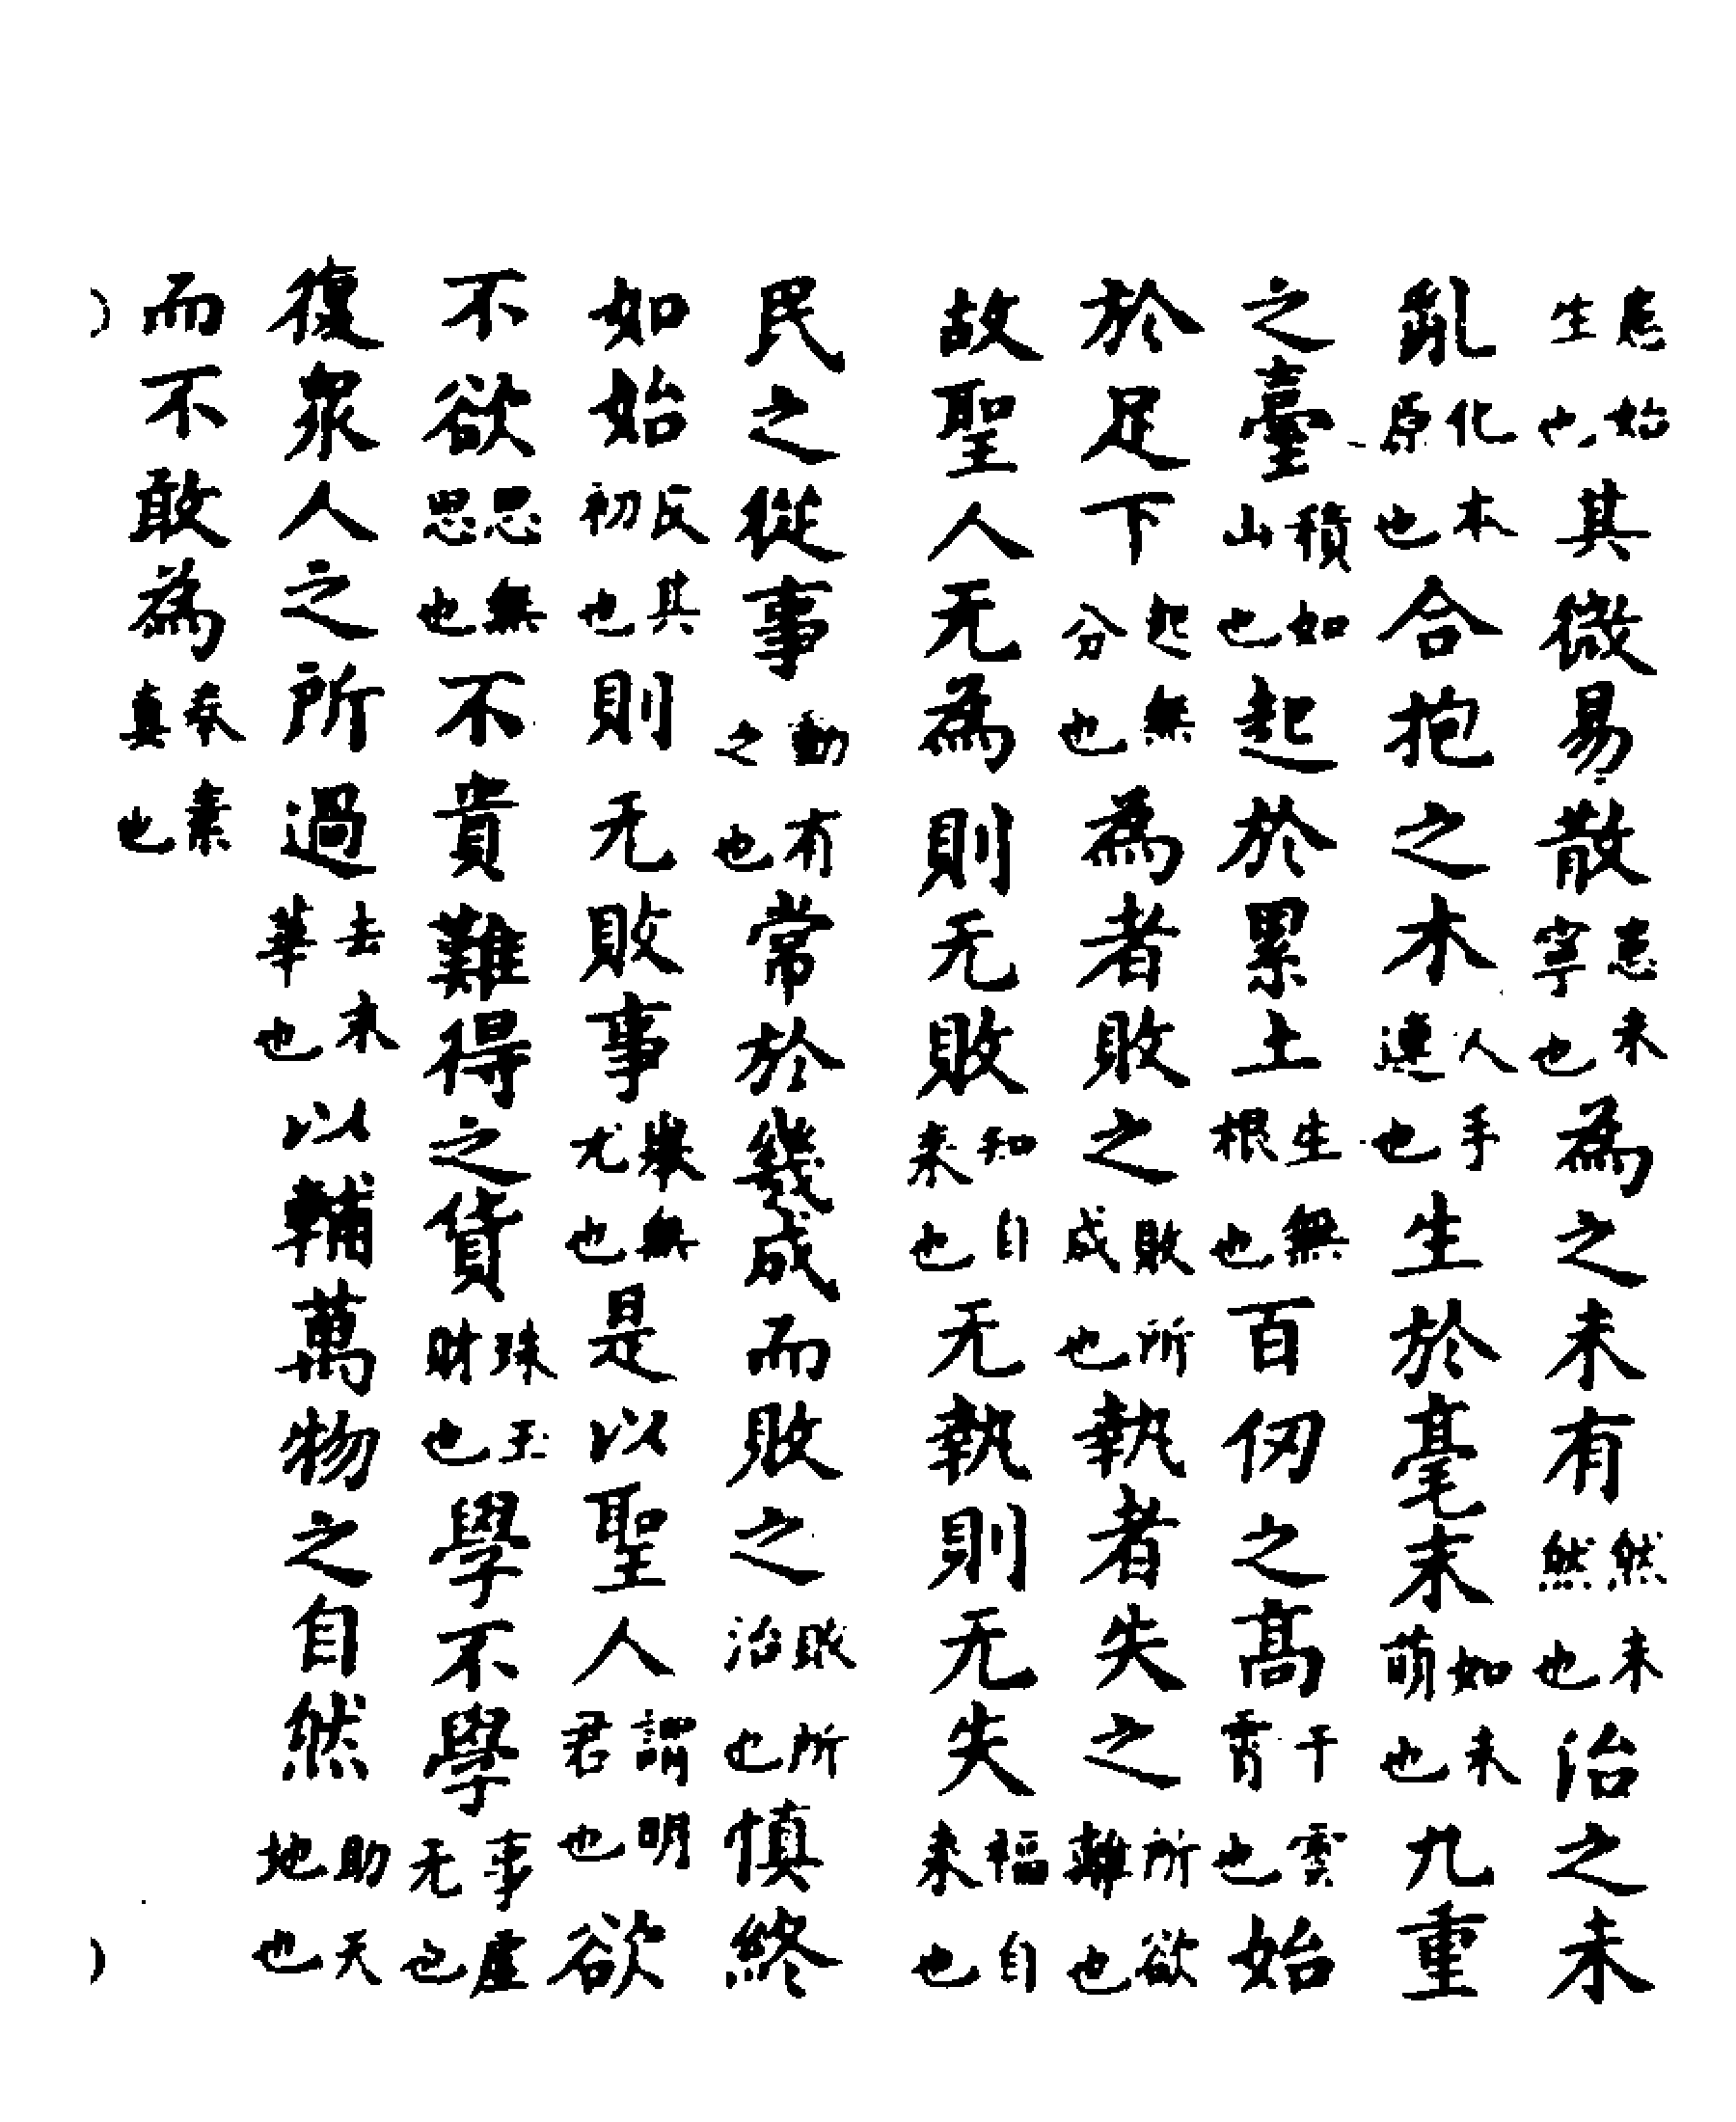 始生也其微易散志未寧也為之未有然未然也治之未
亂化本原也合抱之木人手連也生於毫末如未萌也九重
之臺積如山也起於累土生無根也百仞之高干雲霄也始
於足下起無分也為者敗之敗所成也執者失之所欲離也
故聖人无為則无敗知自来也无執則无失福自来也
民之從事動有之也常於幾成而敗之敗所治也慎終
如始其初也則无敗事舉無尤也是以聖人謂明君也欲
不欲思無思也不貴難得之貨珠玉財也學不學事虛无也
復衆人之所過去末華也以輔萬物之自然助天地也
而不敢為奉素真也